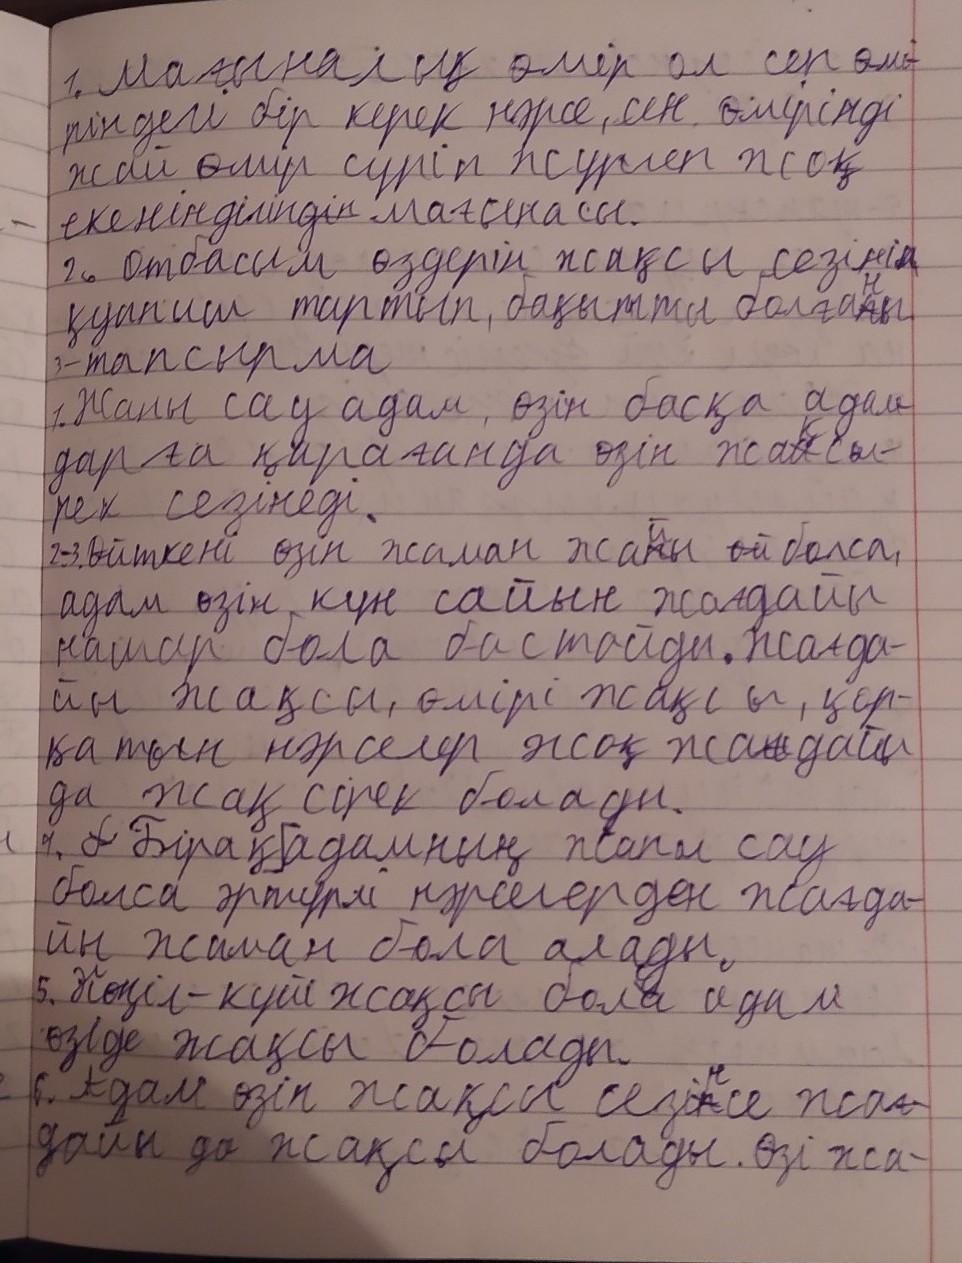 1. Мағыналық өмір ол сен өмі-
ріндегі бір керек нәрсе, сен өміріңді
жай өмір сүріп жүрмеп жоқ
екеніңділіңдің мағынасы.
2. Отбасым өздерін жақсы сезініп
қуаныш тартып, бақытты болғаны
3-тапсырма
1. Жаны сау адам, өзін басқа адам
дарға қарағанда өзін жақсы-
рек сезінеді.
2-3. Өйткені өзін жаман жаны ой болса,
адам өзін күн сайын жағдайы
нашар бола бастайды. Жағда-
йы жақсы, өмірі жақсы, қор-
қатын нәрселер жоқ жағдайы
да жақсірек болады.
4. Бірақ адамның жаны сау
болса әртүрлі нәрселерден жағда-
йы жаман бола алады.
5. Көңіл-күй жақсы бола адам
өзіде жақсы болады.
6. Адам өзін жақсы сезінсе жағ-
дайы да жақсы болады. Өзі жа-